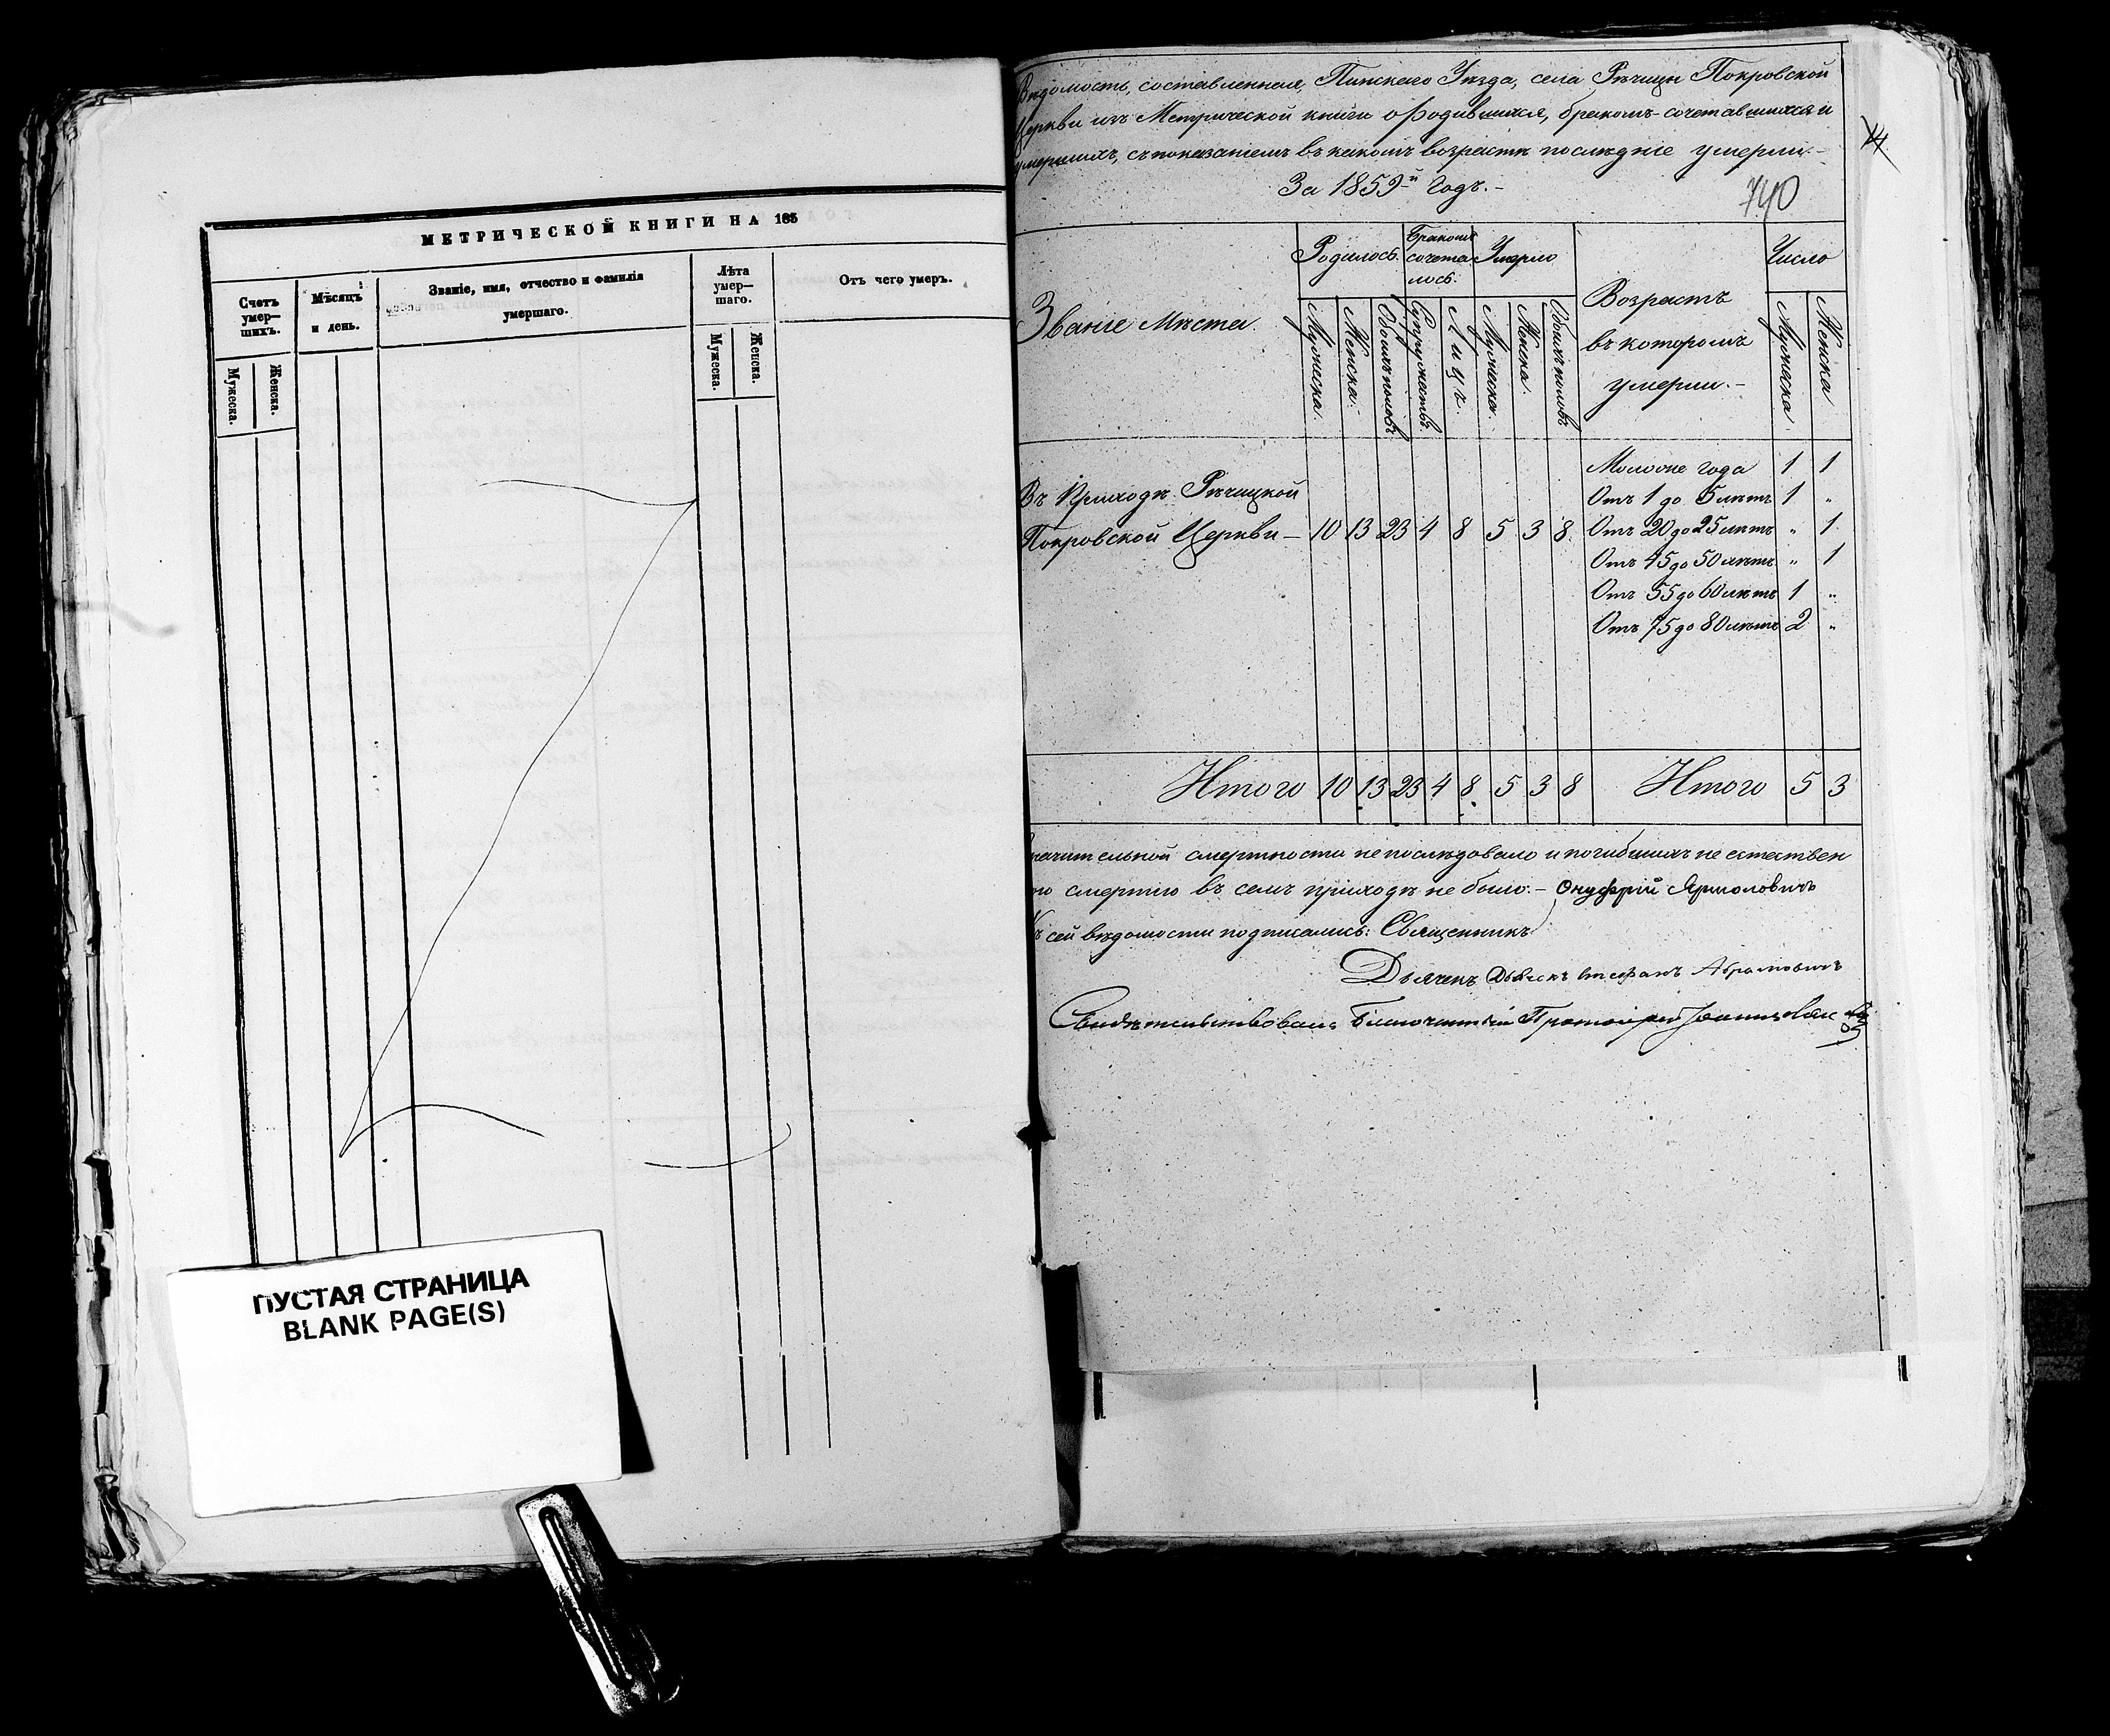 МЕТРИЧЕСКОЙ КНИГИ НА 185
Счетъ умер-шихъ.
Мѣсяцъ и день.
Званіе, имя, отчество и фамилія умершаго.
Лѣта умер-шаго.
Отъ чего умеръ.
Мужеска.
Женска.
Мужеска.
Женска.
ПУСТАЯ СТРАНИЦА
BLANK PAGE(S)
Вѣдомость, составленная, Пинскаго Уѣзда, села Рѣчицы Покровской
Церкви изъ Метрической книги о Родившихся, бракомъ сочетавшихся и
умершихъ, съ показаніемъ въ какомъ возрастѣ послѣдніе умерли.-
За 1859-й Годъ.-
740
Званіе Мѣста.
Родилось.
Бракомъ сочета лось.
Умерло
Возрастъ въ которомъ умерли.-
Число
Мужеска.
Женска.
Обоихъ половъ.
Супружествъ.
Лицъ.
Мужеска.
Женска.
Обоихъ половъ
Мужеска
Женска
Моложе года 1 1
Въ Приходѣ Рѣчицкой
Отъ 1 до 5 лѣтъ 1 "
Покровской Церкви — 10 13 23 4 8 5 3 8. Отъ 20 до 25 лѣтъ " 1
Отъ 45 до 50 лѣтъ " 1
Отъ 55 до 60 лѣтъ 1 "
Отъ 75 до 80 лѣтъ 2 "
Итого 10 13 23 4 8 5 3 8 Итого 5 3
начительной смертности не послѣдовало и погибшихъ не естествен
ою смертію въ семъ приходѣ не было.- Онуфрій Ярмоловичъ
ъ сей вѣдомости подписались: Священникъ
Дьячекъ Дьячекъ Стефанъ Абрамовичъ
Свидѣтельствовалъ Благочинный Протоіерей